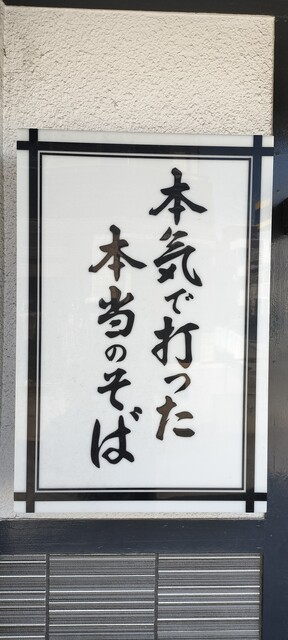 本気で打った
本当のそば